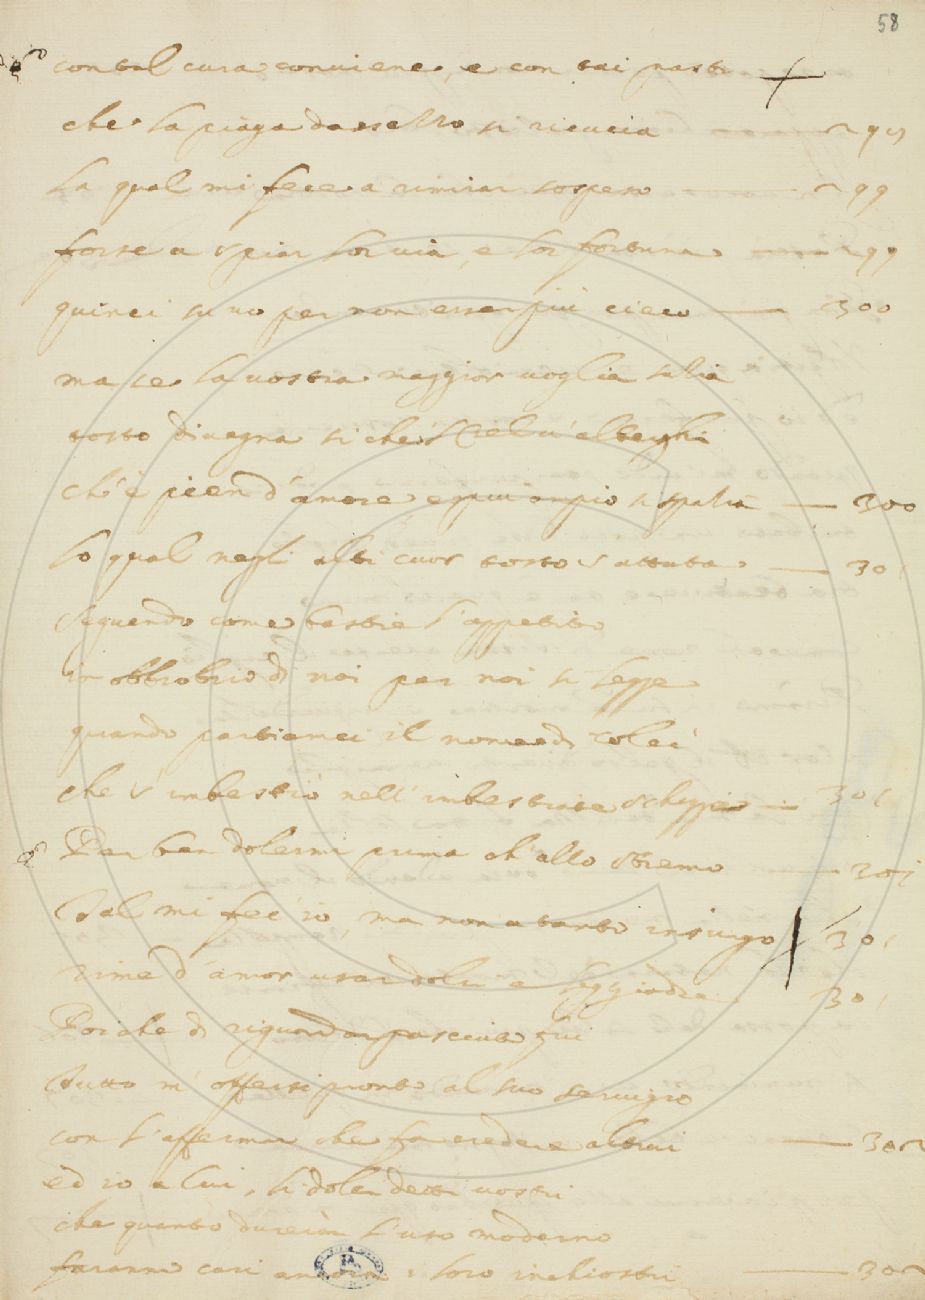 58
con tal cura conviene, e con tai pasti
che la piaga dassezzo si ricucia 295
La qual mi fece a rimirar sospeso 299
forse a spiar lor via, e lor fortuna 299
quinci su vo per non esser più cieco 300
ma se la vostra maggior voglia satia
tosto divegna si che 'l Ciel v'alberghi
ch'è pien d'amore e più ampio si spatia 300
lo qual negli alti cuor tosto s'attuta 301
Seguendo come bestie l'appetito
in obbrobrio di noi per noi si legge
quando partiamci il nome di colei
che s'imbestiò nell'imbestiate schegge 301
Per ben dolermi prima ch'allo stremo 301
Tal mi fec'io, ma non a tanto insurgo 301
rime d'amor usar dolci e leggiadre 301
Poiche di riguardar pasciuto fui
Tutto m'offersi pronto al suo servigio
con l'affermar che fa credere altrui 302
ed io a lui, li dolci detti vostri
che quanto durerà l'uso moderno
faranno cari ancora i loro inchiostri 302